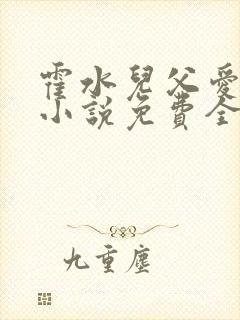 霍水兒父愛
小說免費全
九重塵